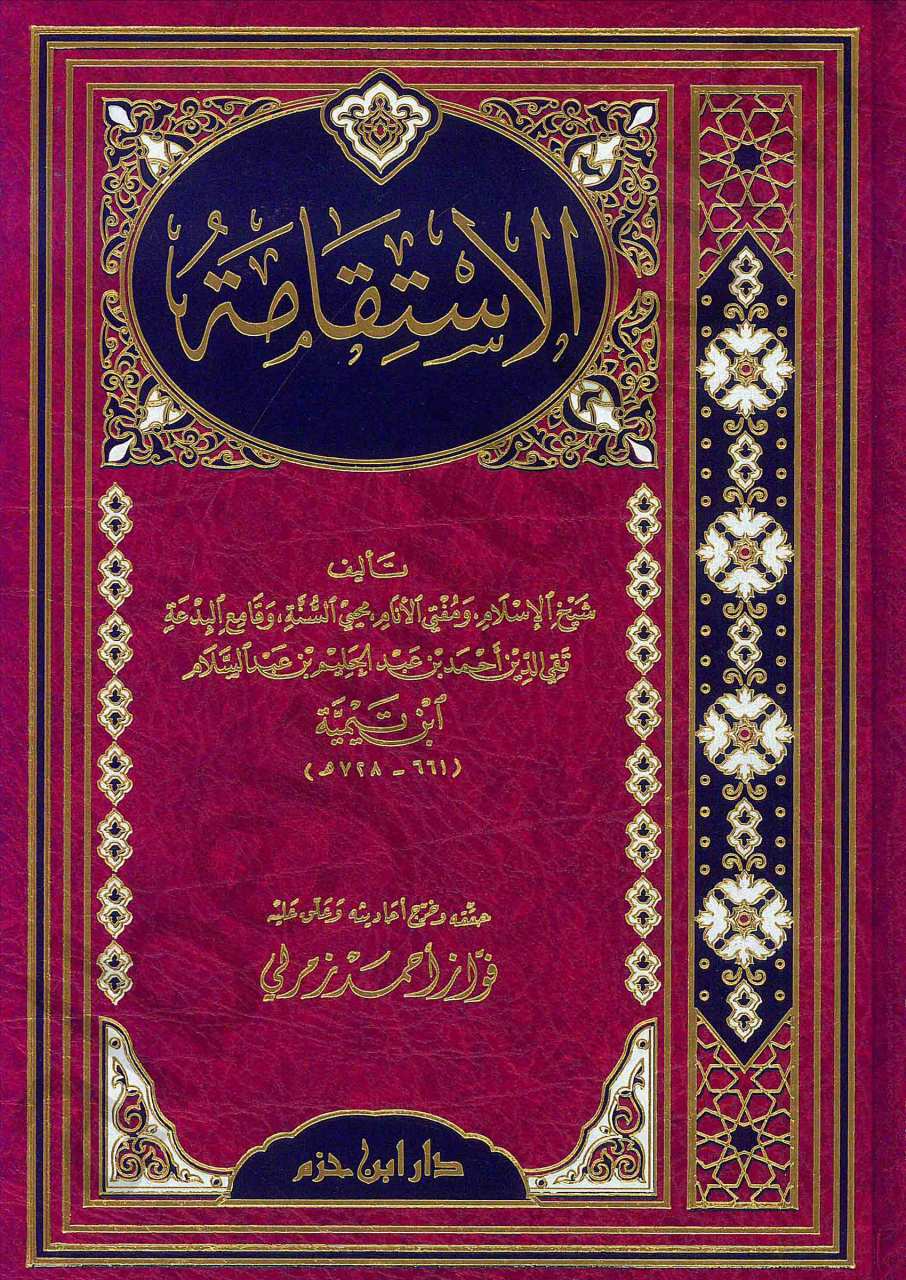 الاسْتِقَامَةُ
تَأليف
شَيْخ الإِسْلَامِ، وَمُفْتِي الأنَامِ، مُحْيِي السُّنَّةِ، وَقَامِعِ البِدْعَةِ
تَقِيّ الدِّيْن أَحْمَد بْن عَبْد الحَلِيْم بْن عَبْد السَّلَام
ابْن تَيْمِيَّة
(٦٦١ - ٧٢٨هـ)
حقّقه وخرّج أحاديثه وَعَلّق عَليْه
فوَّاز أحمد زمرلي
دار ابن حزم